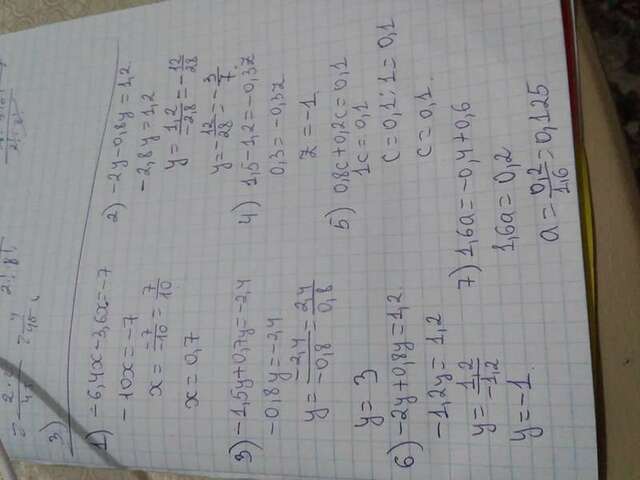 3)
1) -6,4x-3,6x=-7
-10x=-7
x=-7/-10=7/10
x=0,7
2) -2y-0,8y=1,2
-2,8y=1,2
y=1,2/-2,8=-12/28
y=-12/28=-3/7
3) -1,5y+0,7y=-2,4
-0,8y=-2,4
y=-2,4/-0,8=2,4/0,8
y=3
4) 1,5-1,2=-0,3z
0,3=-0,3z
z=-1
5) 0,8c+0,2c=0,1
1c=0,1
c=0,1:1=0,1
c=0,1
6) -2y+0,8y=1,2
-1,2y=1,2
y=1,2/-1,2
y=-1
7) 1,6a=-0,4+0,6
1,6a=0,2
a=0,2/1,6=0,125